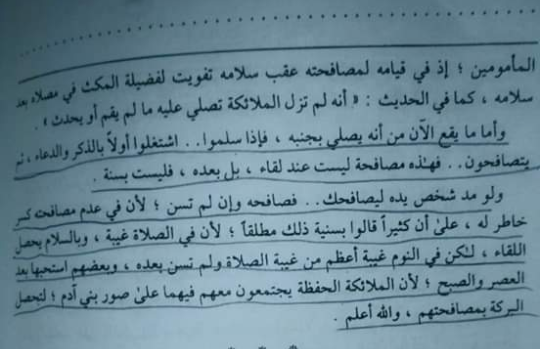 المأمومين ؛ إذ في قيامه لمصافحته عقب سلامه تفويت لفضيلة المكث في مصلاه بعد
سلامه ، كما في الحديث : « أنه لم تزل الملائكة تصلي عليه ما لم يقم أو يحدث » .
وأما ما يقع الآن من أنه يصلي بجنبه ، فإذا سلموا .. اشتغلوا أولاً بالذكر والدعاء ، ثم
يتصافحون .. فهذه مصافحة ليست عند لقاء ، بل بعده ، فليست بسنة .
ولو مد شخص يده ليصافحك .. فصافحه وإن لم تسن ؛ لأن في عدم مصافحته كسر
خاطر له ، على أن كثيراً قالوا بسنية ذلك مطلقاً ؛ لأن في الصلاة غيبة ، وبالسلام يحصل
اللقاء ، لكن في النوم غيبة أعظم من غيبة الصلاة ولم تسن بعده ، وبعضهم استحبها بعد
العصر والصبح ؛ لأن الملائكة الحفظة يجتمعون معهم فيهما على صور بني آدم ؛ لتحصل
البركة بمصافحتهم ، والله أعلم .
* * *